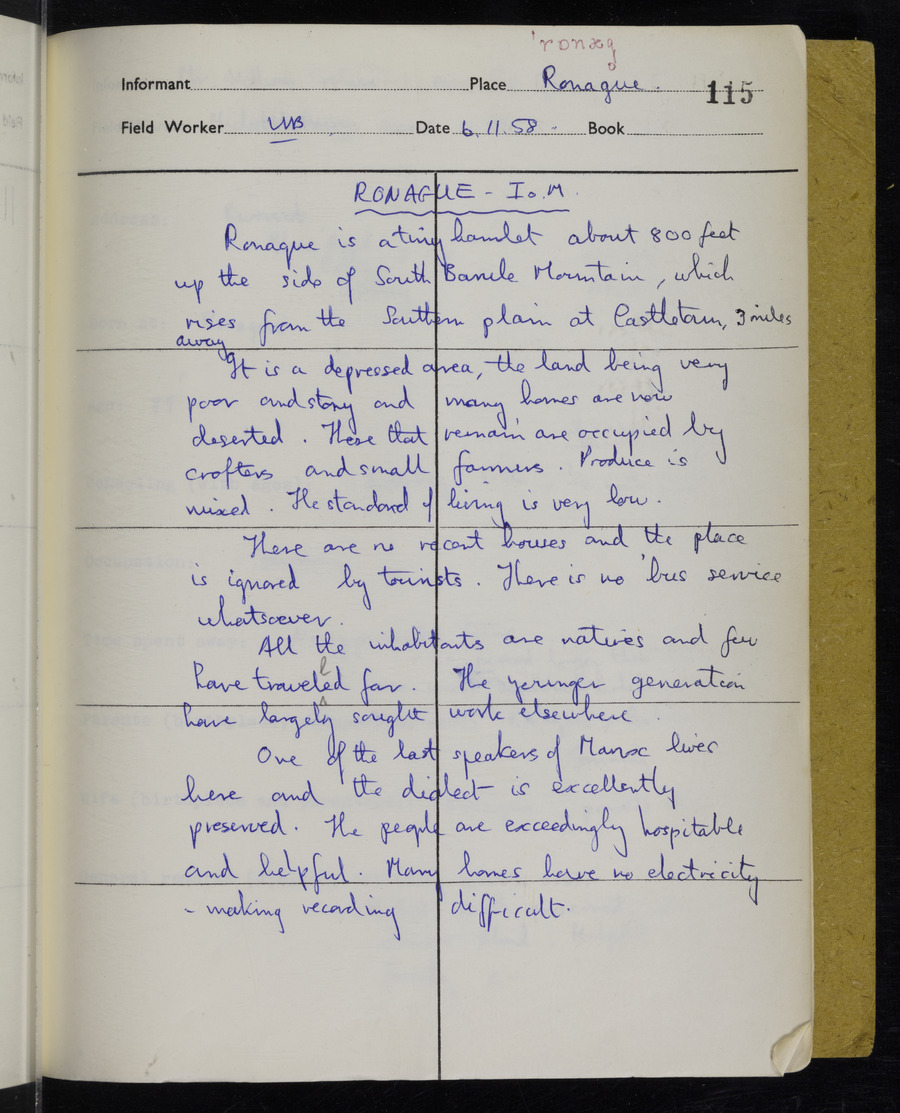 'rɒnæg
Informant Place Ronague. 115
Field Worker WB Date 6.11.58. Book
RONAGUE - I.o.M.
Ronague is a tiny hamlet about 800 feet
up the side of South Barrule Mountain, which
rises from the Southern plain at Castletown, 3 miles
away
It is a depressed area, the land being very
poor and stony and many homes are now
deserted. Those that remain are occupied by
crofters and small farmers. Produce is
mixed. The standard of living is very low.
There are no recent houses and the place
is ignored by tourists. There is no 'bus service
whatsoever.
All the inhabitants are natives and few
l
have traveled far. The younger generation
have largely sought work elsewhere.
One of the last speakers of Manx lives
here and the dialect is excellently
preserved. The people are exceedingly hospitable
and helpful. Many homes have no electricity
- making recording difficult.